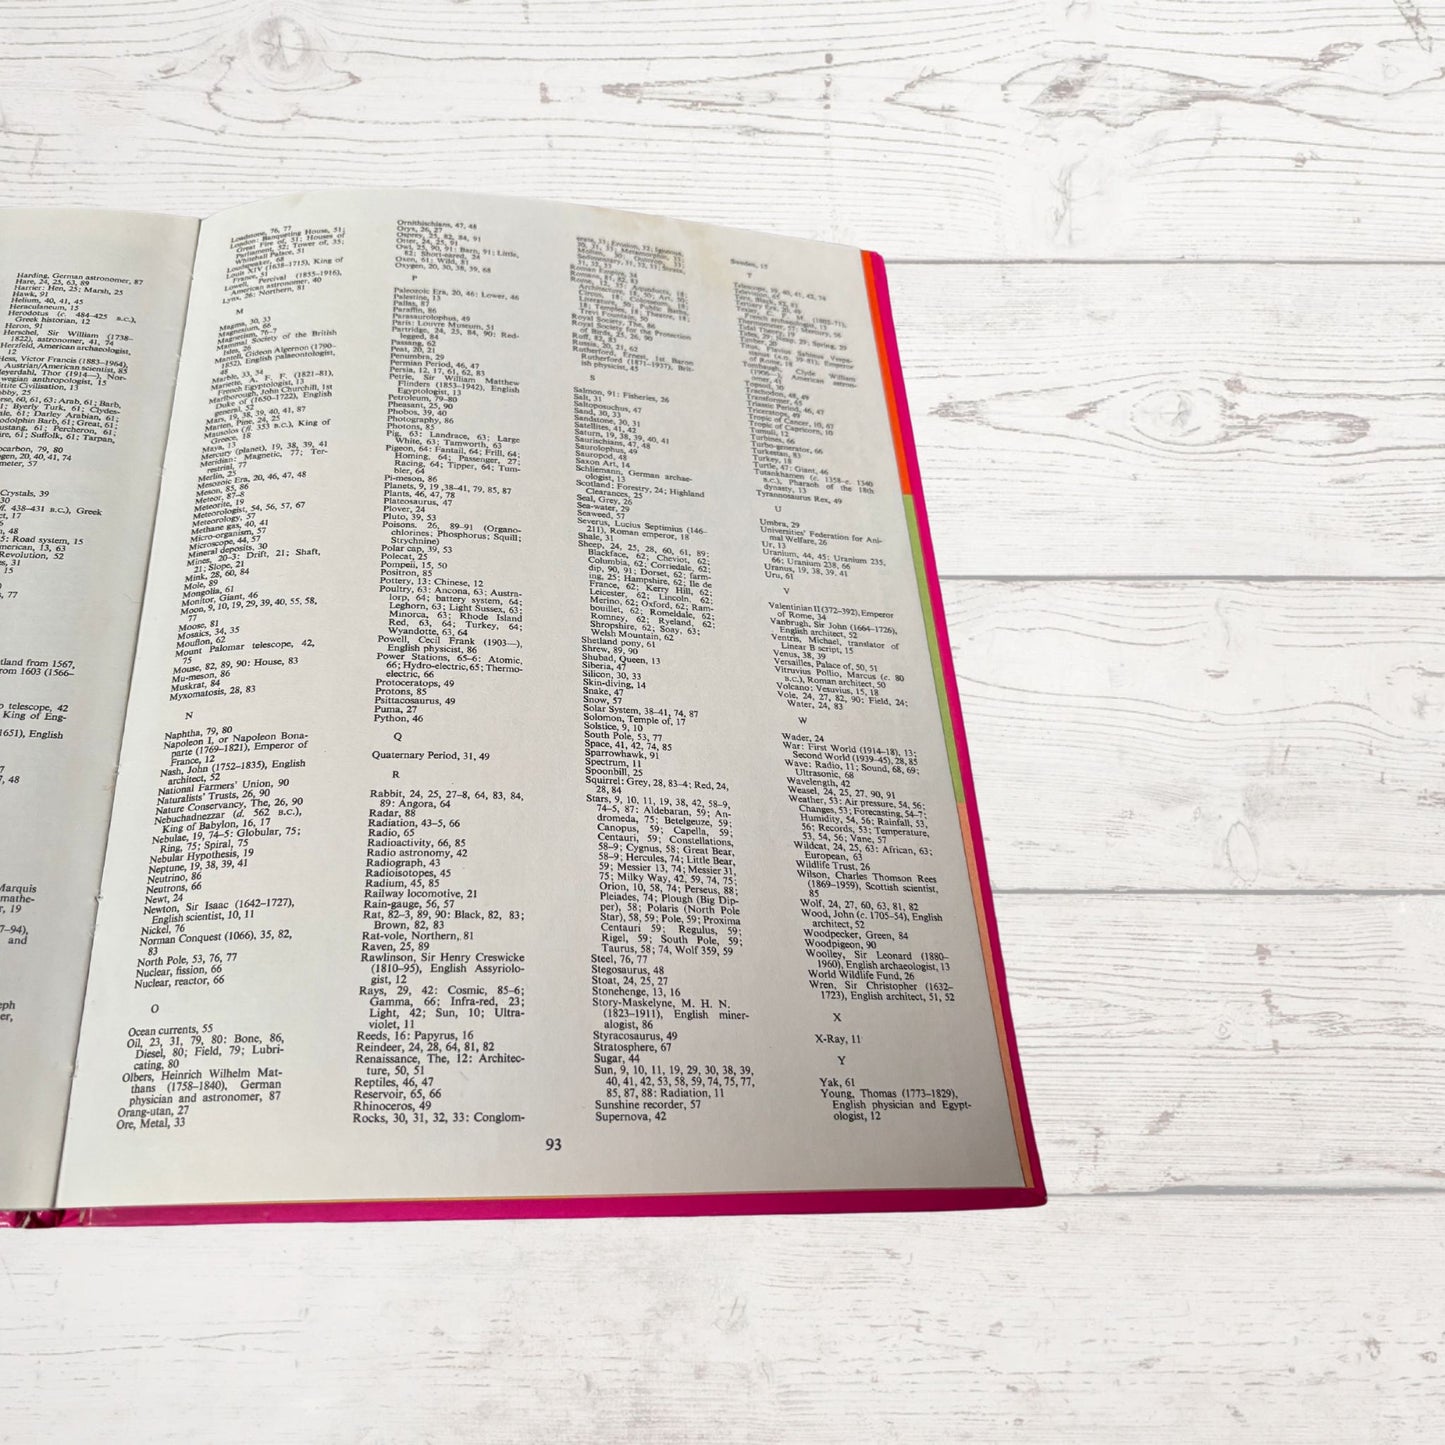 Harding, German astronomer, 87
Hare, 24, 25, 63, 89
Harrier: Hen, 25; Marsh, 25
Hawk, 91
Helium, 40, 41, 45
Heraculaneum, 15
Herodotus (c. 484-425 B.C.),
Greek historian, 12
Heron, 91
Herschel, Sir William (1738–
1822), astronomer, 41, 74
Herzfeld, American archaeologist,
12
Hess, Victor Francis (1883–1964),
Austrian/American scientist, 85
Heyerdahl, Thor (1914—), Nor-
wegian anthropologist, 15
Hittite Civilisation, 13
Hobby, 25
61; Byerly Turk, 61; Clydes-
dale, 61; Darley Arabian, 61;
Godolphin Barb, 61; Great, 61;
Mustang, 61; Percheron, 61;
Shire, 61; Suffolk, 61; Tarpan,
carbon, 79, 80
gen, 20, 40, 41, 74
meter, 57
Crystals, 39
30
ff. 438–431 B.C.), Greek
ct, 17
48
5: Road system, 15
merican, 13, 63
Revolution, 52
s, 31
15
s, 77
tland from 1567,
rom 1603 (1566–
o telescope, 42
King of Eng-
1651), English
7, 48
Marquis
mathe-
r, 19
7–94),
and
eph
er,
Loadstone, 76, 77
London: Banqueting House, 51;
Great Fire of, 51; Houses of
Parliament, 52; Tower of, 35;
Whitehall Palace, 51
Loudspeaker, 68
Louis XIV (1638–1715), King of
France, 51
Lowell, Percival (1855–1916),
American astronomer, 40
Lynx, 26: Northern, 81
M
Magma, 30, 33
Magnesium, 66
Magnetism, 76–7
Mammal Society of the British
Isles, 26
Mantell, Gideon Algernon (1790–
1852), English palaeontologist,
48
Marble, 33, 34
Mariette, A. F. F. (1821–81),
French Egyptologist, 13
Marlborough, John Churchill, 1st
Duke of (1650–1722), English
general, 52
Mars, 19, 38, 39, 40, 41, 87
Marten, Pine, 24, 25
Mausolos (fl. 353 B.C.), King of
Greece, 18
Maya, 13
Mercury (planet), 19, 38, 39, 41
Meridian: Magnetic, 77; Ter-
restrial, 77
Merlin, 25
Mesozoic Era, 20, 46, 47, 48
Meson, 85, 86
Meteor, 87–8
Meteorite, 19
Meteorologist, 54, 56, 57, 67
Meteorology, 57
Methane gas, 40, 41
Micro-organism, 57
Microscope, 44, 57
Mineral deposits, 30
Mines, 20–3: Drift, 21; Shaft,
21; Slope, 21
Mink, 28, 60, 84
Mole, 89
Mongolia, 61
Monitor, Giant, 46
Moon, 9, 10, 19, 29, 39, 40, 55, 58,
77
Moose, 81
Mosaics, 34, 35
Mouflon, 62
Mount Palomar telescope, 42,
75
Mouse, 82, 89, 90: House, 83
Mu-meson, 86
Muskrat, 84
Myxomatosis, 28, 83
N
Naphtha, 79, 80
Napoleon I, or Napoleon Bona-
parte (1769–1821), Emperor of
France, 12
Nash, John (1752–1835), English
architect, 52
National Farmers' Union, 90
Naturalists' Trusts, 26, 90
Nature Conservancy, The, 26, 90
Nebuchadnezzar (d. 562 B.C.),
King of Babylon, 16, 17
Nebulae, 19, 74–5: Globular, 75;
Ring, 75; Spiral, 75
Nebular Hypothesis, 19
Neptune, 19, 38, 39, 41
Neutrino, 86
Neutrons, 66
Newt, 24
Newton, Sir Isaac (1642–1727),
English scientist, 10, 11
Nickel, 76
Norman Conquest (1066), 35, 82,
83
North Pole, 53, 76, 77
Nuclear, fission, 66
Nuclear, reactor, 66
O
Ocean currents, 55
Oil, 23, 31, 79, 80: Bone, 86,
Diesel, 80; Field, 79; Lubri-
cating, 80
Olbers, Heinrich Wilhelm Mat-
thans (1758–1840), German
physician and astronomer, 87
Orang-utan, 27
Ore, Metal, 33
Ornithischians, 47, 48
Oryx, 26, 27
Osprey, 25, 82, 84, 91
Otter, 24, 25, 91
Owl, 25, 90, 91: Barn, 91; Little,
82; Short-eared, 24
Oxen, 61; Wild, 81
Oxygen, 20, 30, 38, 39, 68
P
Paleozoic Era, 20, 46: Lower, 46
Palestine, 13
Pallas, 87
Paraffin, 86
Parasaurolophus, 49
Paris: Louvre Museum, 51
Partridge, 24, 25, 84, 90: Red-
legged, 84
Passang, 62
Peat, 20, 21
Penumbra, 29
Permian Period, 46, 47
Persia, 12, 17, 61, 62, 83
Petrie, Sir William Matthew
Flinders (1853–1942), English
Egyptologist, 13
Petroleum, 79–80
Pheasant, 25, 90
Phobos, 39, 40
Photography, 86
Photons, 85
Pig, 63: Landrace, 63; Large
White, 63; Tamworth, 63
Pigeon, 64: Fantail, 64; Frill, 64;
Homing, 64; Passenger, 27;
Racing, 64; Tipper, 64; Tum-
bler, 64
Pi-meson, 86
Planets, 9, 19, 38–41, 79, 85, 87
Plants, 46, 47, 78
Plateosaurus, 47
Plover, 24
Pluto, 39, 53
Poisons, 26, 89–91 (Organo-
chlorines; Phosphorus; Squill;
Strychnine)
Polar cap, 39, 53
Polecat, 25
Pompeii, 15, 50
Positron, 85
Pottery, 13: Chinese, 12
Poultry, 63: Ancona, 63; Austra-
lorp, 64; battery system, 64;
Leghorn, 63; Light Sussex, 63;
Minorca, 63; Rhode Island
Red, 63, 64; Turkey, 64;
Wyandotte, 63, 64
Powell, Cecil Frank (1903—),
English physicist, 86
Power Stations, 65–6: Atomic,
66; Hydro-electric, 65; Thermo-
electric, 66
Protoceratops, 49
Protons, 85
Psittacosaurus, 49
Puma, 27
Python, 46
Q
Quaternary Period, 31, 49
R
Rabbit, 24, 25, 27–8, 64, 83, 84,
89: Angora, 64
Radar, 88
Radiation, 43–5, 66
Radio, 65
Radioactivity, 66, 85
Radio astronomy, 42
Radiograph, 43
Radioisotopes, 45
Radium, 45, 85
Railway locomotive, 21
Rain-gauge, 56, 57
Rat, 82–3, 89, 90: Black, 82, 83;
Brown, 82, 83
Rat-vole, Northern, 81
Raven, 25, 89
Rawlinson, Sir Henry Creswicke
(1810–95), English Assyriolo-
gist, 12
Rays, 29, 42: Cosmic, 85–6;
Gamma, 66; Infra-red, 23;
Light, 42; Sun, 10; Ultra-
violet, 11
Reeds, 16: Papyrus, 16
Reindeer, 24, 28, 64, 81, 82
Renaissance, The, 12: Architec-
ture, 50, 51
Reptiles, 46, 47
Reservoir, 65, 66
Rhinoceros, 49
Rocks, 30, 31, 32, 33: Conglom-
erate, 31; Erosion, 32; Igneous,
30, 31, 33; Metamorphic, 33;
Molten, 30; Outcrop, 33;
Sedimentary, 31, 32, 33; Strata,
31, 32, 33
Roman Empire, 34
Romans, 81, 82, 83
Rome, 12, 35: Aqueducts, 18;
Architecture, 18, 50; Art, 50;
Circus, 18; Colosseum, 18;
Literature, 50; Public Baths,
18; Temples, 18; Theatre, 18;
Trevi Fountain, 50
Royal Society, The, 86
Royal Society for the Protection
of Birds, 25, 26, 90
Ruff, 82, 83
Russia, 20, 21, 62
Rutherford, Ernest, 1st Baron
Rutherford (1871–1937), Brit-
ish physicist, 45
S
Salmon, 91: Fisheries, 26
Salt, 31
Saltoposuchus, 47
Sand, 30, 33
Sandstone, 30, 31
Satellites, 41, 42
Saturn, 19, 38, 39, 40, 41
Saurischians, 47, 48
Saurolophus, 49
Sauropod, 48
Saxon Art, 14
Schliemann, German archae-
ologist, 13
Scotland: Forestry, 24; Highland
Clearances, 25
Seal, Grey, 26
Sea-water, 29
Seaweed, 57
Severus, Lucius Septimius (146–
211), Roman emperor, 18
Shale, 31
Sheep, 24, 25, 28, 60, 61, 89:
Blackface, 62; Cheviot, 62;
Columbia, 62; Corriedale, 62;
dip, 90, 91; Dorset, 62; farm-
ing, 25; Hampshire, 62; Ile de
France, 62; Kerry Hill, 62;
Leicester, 62; Lincoln, 62;
Merino, 62; Oxford, 62; Ram-
bouillet, 62; Romeldale, 62;
Romney, 62; Ryeland, 62;
Shropshire, 62; Soay, 63;
Welsh Mountain, 62
Shetland pony, 61
Shrew, 89, 90
Shubad, Queen, 13
Siberia, 47
Silicon, 30, 33
Skin-diving, 14
Snake, 47
Snow, 57
Solar System, 38–41, 74, 87
Solomon, Temple of, 17
Solstice, 9, 10
South Pole, 53, 77
Space, 41, 42, 74, 85
Sparrowhawk, 91
Spectrum, 11
Spoonbill, 25
Squirrel: Grey, 28, 83–4; Red, 24,
28, 84
Stars, 9, 10, 11, 19, 38, 42, 58–9,
74–5, 87: Aldebaran, 59; An-
dromeda, 75; Betelgeuze, 59;
Canopus, 59; Capella, 59;
Centauri, 59; Constellations,
58–9; Cygnus, 58; Great Bear,
58–9; Hercules, 74; Little Bear,
59; Messier 13, 74; Messier 31,
75; Milky Way, 42, 59, 74, 75;
Orion, 10, 58, 74; Perseus, 88;
Pleiades, 74; Plough (Big Dip-
per), 58; Polaris (North Pole
Star), 58, 59; Pole, 59; Proxima
Centauri 59; Regulus, 59;
Rigel, 59; South Pole, 59;
Taurus, 58; 74, Wolf 359, 59
Steel, 76, 77
Stegosaurus, 48
Stoat, 24, 25, 27
Stonehenge, 13, 16
Story-Maskelyne, M. H. N.
(1823–1911), English miner-
alogist, 86
Styracosaurus, 49
Stratosphere, 67
Sugar, 44
Sun, 9, 10, 11, 19, 29, 30, 38, 39,
40, 41, 42, 53, 58, 59, 74, 75, 77,
85, 87, 88: Radiation, 11
Sunshine recorder, 57
Supernova, 42
Sweden, 15
T
Telescope, 19, 40, 41, 42, 74
Television, 65
Tern, Black, 82, 83
French archaeologist, 13
Titus, Flavius Sabinus Vespa-
sianus (A.D. 39–81), Emperor
of Rome, 18
Tombaugh, Clyde William
(1906—), American astron-
omer, 41
Topsoil, 30
Trachodon, 48, 49
Transformer, 65
Triassic Period, 46, 47
Triceratops, 49
Tropic of Cancer, 10, 67
Tropic of Capricorn, 10
Tumuli, 12
Turbines, 66
Turbo-generator, 66
Turkestan, 83
Turkey, 18
Turtle, 47: Giant, 46
Tutankhamen (c. 1358–c. 1340
B.C.), Pharaoh of the 18th
dynasty, 13
Tyrannosaurus Rex, 49
U
Umbra, 29
Universities' Federation for Ani-
mal Welfare, 26
Ur, 13
Uranium, 44, 45: Uranium 235,
66; Uranium 238, 66
Uranus, 19, 38, 39, 41
Uru, 61
V
Valentinian II (372–392), Emperor
of Rome, 34
Vanbrugh, Sir John (1664–1726),
English architect, 52
Ventris, Michael, translator of
Linear B script, 15
Venus, 38, 39
Versailles, Palace of, 50, 51
Vitruvius Pollio, Marcus (c. 80
B.C.), Roman architect, 50
Volcano: Vesuvius, 15, 18
Vole, 24, 27, 82, 90: Field, 24;
Water, 24, 83
W
Wader, 24
War: First World (1914–18), 13;
Second World (1939–45), 28, 85
Wave: Radio, 11; Sound, 68, 69;
Ultrasonic, 68
Wavelength, 42
Weasel, 24, 25, 27, 90, 91
Weather, 53: Air pressure, 54, 56;
Changes, 53; Forecasting, 54–7;
Humidity, 54, 56; Rainfall, 53,
56; Records, 53; Temperature,
53, 54, 56; Vane, 57
Wildcat, 24, 25, 63: African, 63;
European, 63
Wildlife Trust, 26
Wilson, Charles Thomson Rees
(1869–1959), Scottish scientist,
85
Wolf, 24, 27, 60, 63, 81, 82
Wood, John (c. 1705–54), English
architect, 52
Woodpecker, Green, 84
Woodpigeon, 90
Woolley, Sir Leonard (1880–
1960), English archaeologist, 13
World Wildlife Fund, 26
Wren, Sir Christopher (1632–
1723), English architect, 51, 52
X
X-Ray, 11
Y
Yak, 61
Young, Thomas (1773–1829),
English physician and Egypt-
ologist, 12
93